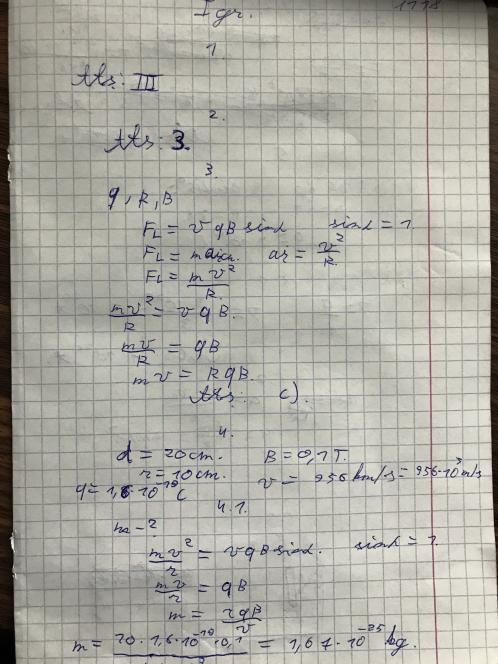 I gr.
1.
Ats: III
2.
Ats: 3.
3.
q, R, B
F_L = v q B sinα sinα = 1
F_L = m a_{cn.} a_r = v²/R.
F_L = mv²/R.
mv²/R = v q B.
mv/R = qB
m v = R q B.
Ats: c).
4.
d = 20 cm. B = 0,1 T.
r = 10 cm. v = 956 km/s = 956·10³ m/s
q = 1,6·10⁻¹⁹ C
4.1.
m - ?
mv²/r = v q B sinα. sinα = 1.
mv/r = qB
m = rqB/v
m = 10·1,6·10⁻¹⁹·0,1 = 1,67·10⁻²⁵ kg.